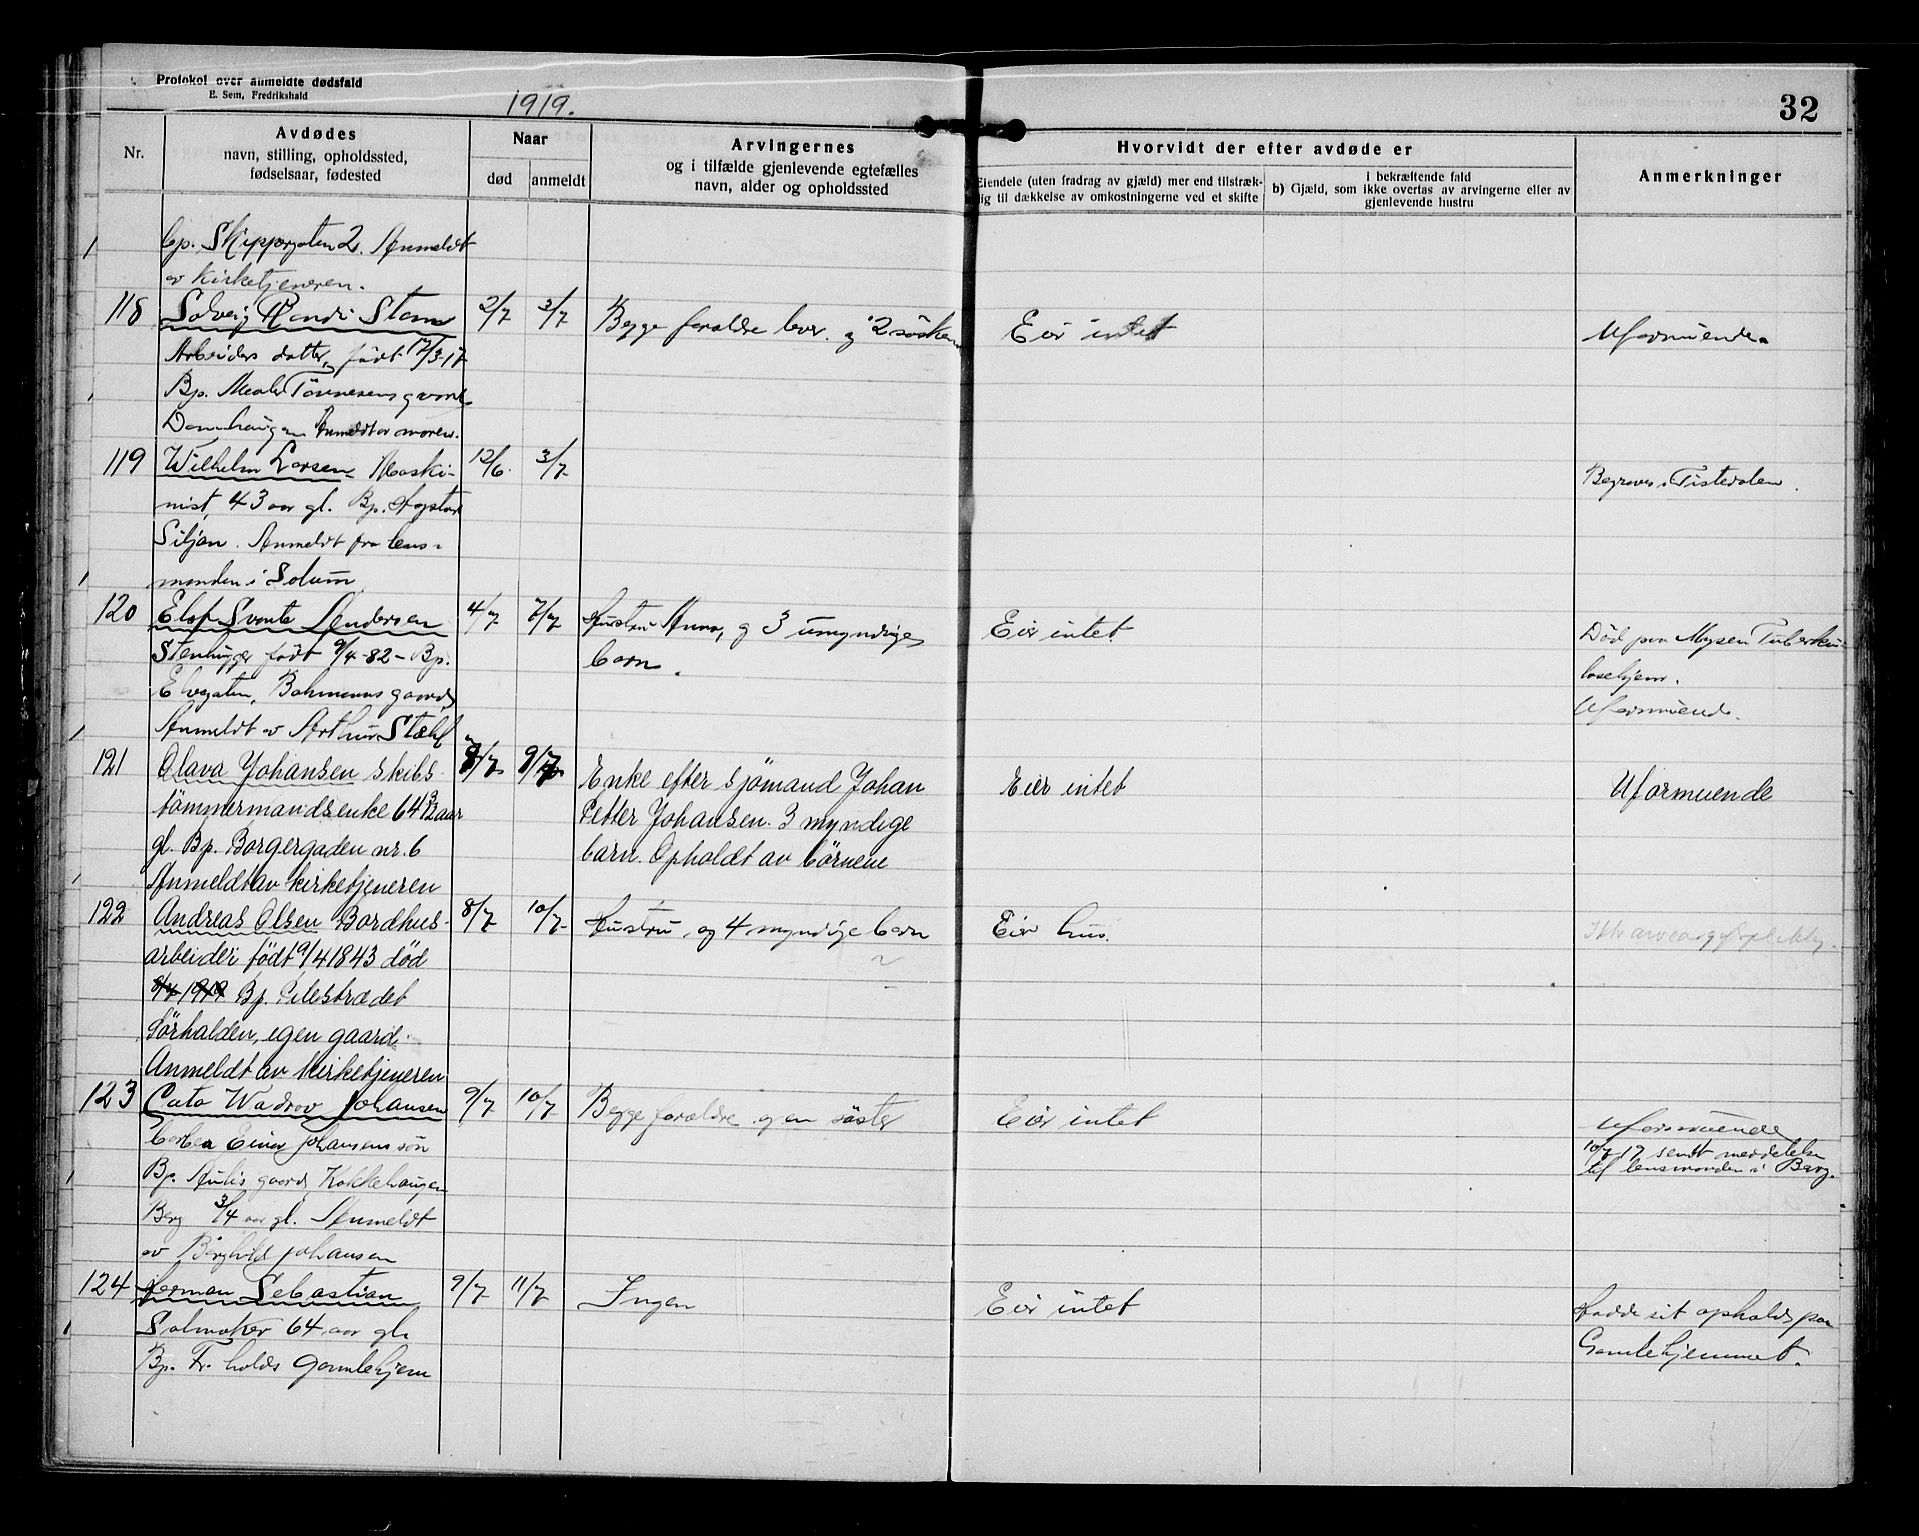 Protokol over anmeldte dødsfald
E. Sem, Fredrikshald
1919.
32
Nr.
Avdødes
navn, stilling, opholdssted,
fødselsaar, fødested
Naar
død
anmeldt
Arvingernes
og i tilfælde gjenlevende egtefælles
navn, alder og opholdssted
Hvorvidt der efter avdøde er
Eiendele (uten fradrag av gjæld) mer end tilstræk-
lig til dækkelse av omkostningerne ved et skifte
i bekræftende fald
b) Gjæld, som ikke overtas av arvingerne eller av
gjenlevende hustru
Anmerkninger
Bp. Skippergaten 2. Anmeldt
av kirketjeneren.
118 Solveig Randi Stem 2/7 3/7 Begge forældre lever og 2 søsken Eier intet Uformuende.
Arbeiders datter, født 17/3-17
Bp. Maler Tønnesens gaard
Damhaugen Anmeldt av moren.
119 Wilhelm Larsen Maski- 12/6. 3/7 Begraves i Tistedalen.
nist, 43 aar gl. Bp.
Siljan. Anmeldt fra lens-
manden i Solum
120 Elof Svante Andersen 4/7 7/7 Hustru Anna, og 3 umyndige Eier intet Død paa Mysen Tuberku-
Stenhugger født 9/4-82 - Bp. barn. losehjem.
Elvegaten, Bohmanns gaard, Uformuende.
Anmeldt av Arthur Stæhl
121 Olava Johansen skibs- 8/7 9/7 Enke efter sjömand Johan Eier intet Uformuende
tömmermandsenke 64 3/12 aar Petter Johansen. 3 myndige
gl. Bp. Borgergaden nr. 6 barn. Opholdt av börnene
Anmeldt av kirketjeneren
122 Andreas Olsen Bordhus- 8/7 10/7 Hustru, og 4 myndige barn Eier hus.
arbeider født 9/4 1843 død
8/7 1919 Bp. Pilestrædet
Sörhalden, egen gaard.
Anmeldt av kirketjeneren
123 Cato Wadrov Johansen 9/7 10/7 Begge forældre og en søster Eier intet Uformuende
Einar Johansens søn 10/7 19 sendt meddelelse
Bp. Aulis gaard Kokkehaugen til lensmanden i Berg.
Berg 3/4 aar gl. Anmeldt
av Borghild Johansen
124 Herman Sebastian 9/7 11/7 Ingen Eier intet Hadde sit ophold paa
Salmaker 64 aar gl. Gamlehjemmet.
Bp. Fr.holds Gamlehjem